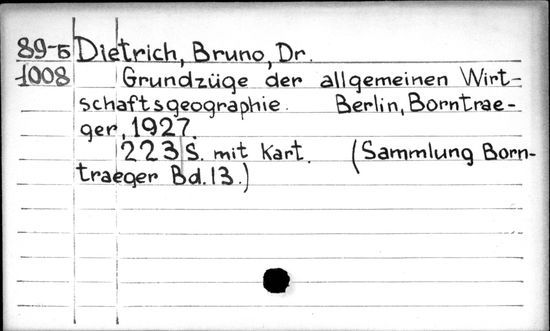 89-5 Dietrich, Bruno, Dr.
1008 Grundzüge der allgemeinen Wirt-
schaftsgeographie. Berlin, Borntrae-
ger, 1927.
223 S. mit Kart. (Sammlung Born-
traeger Bd. 13.)